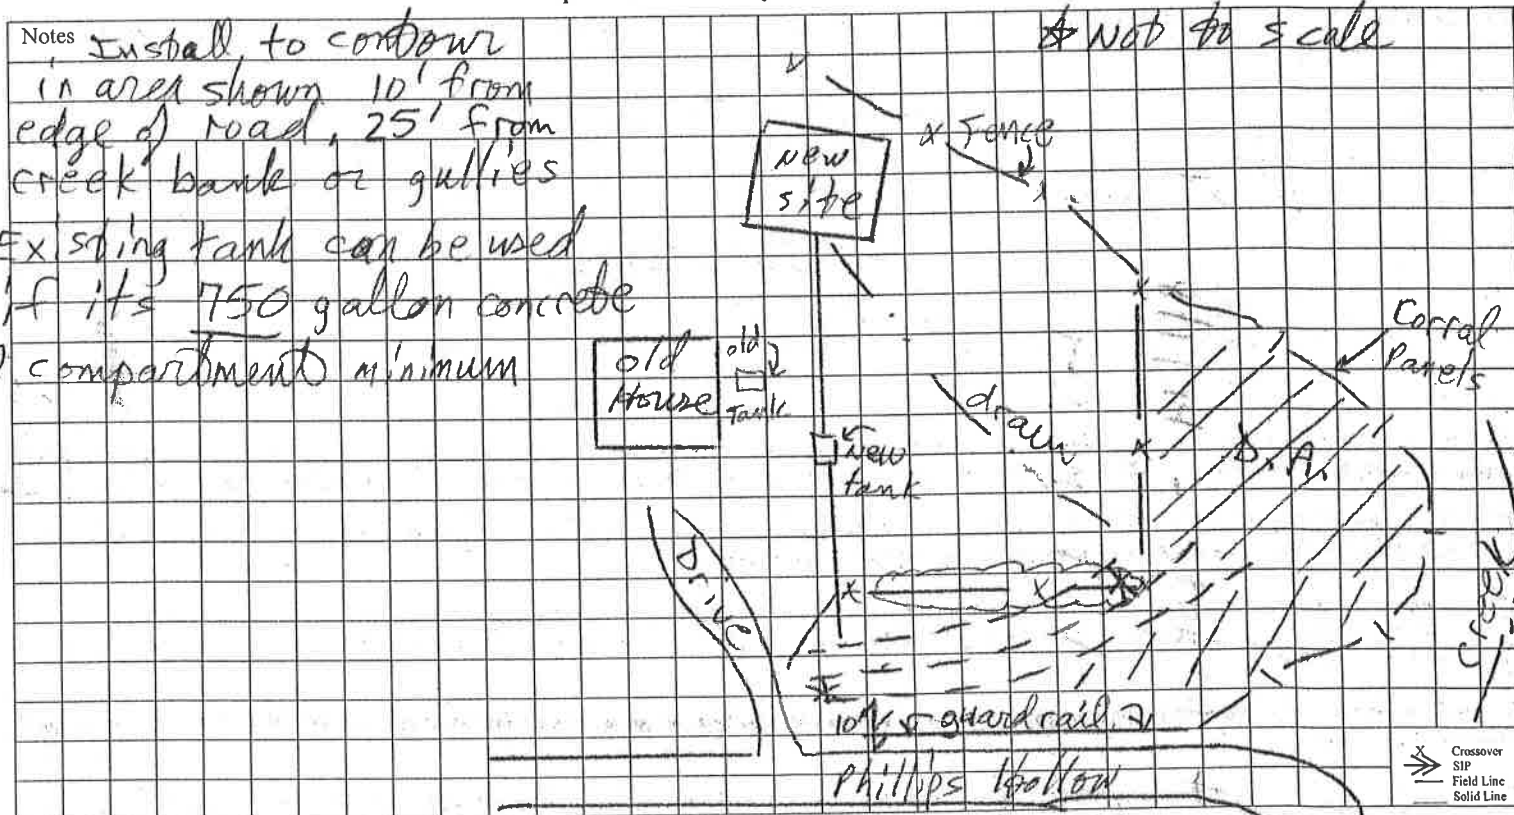 Notes Install to contour
in area shown 10' from
edge of road, 25' from
creek bank or gullies
Existing tank can be used
if its 750 gallon concrete
compartment minimum
* Not to scale
x Fence
New
site
old
House
old
Tank
New
tank
drain
Corral
Panels
D.A.
Drive
Creek
10' guardrail
Phillips Hollow
X Crossover
SIP
Field Line
Solid Line